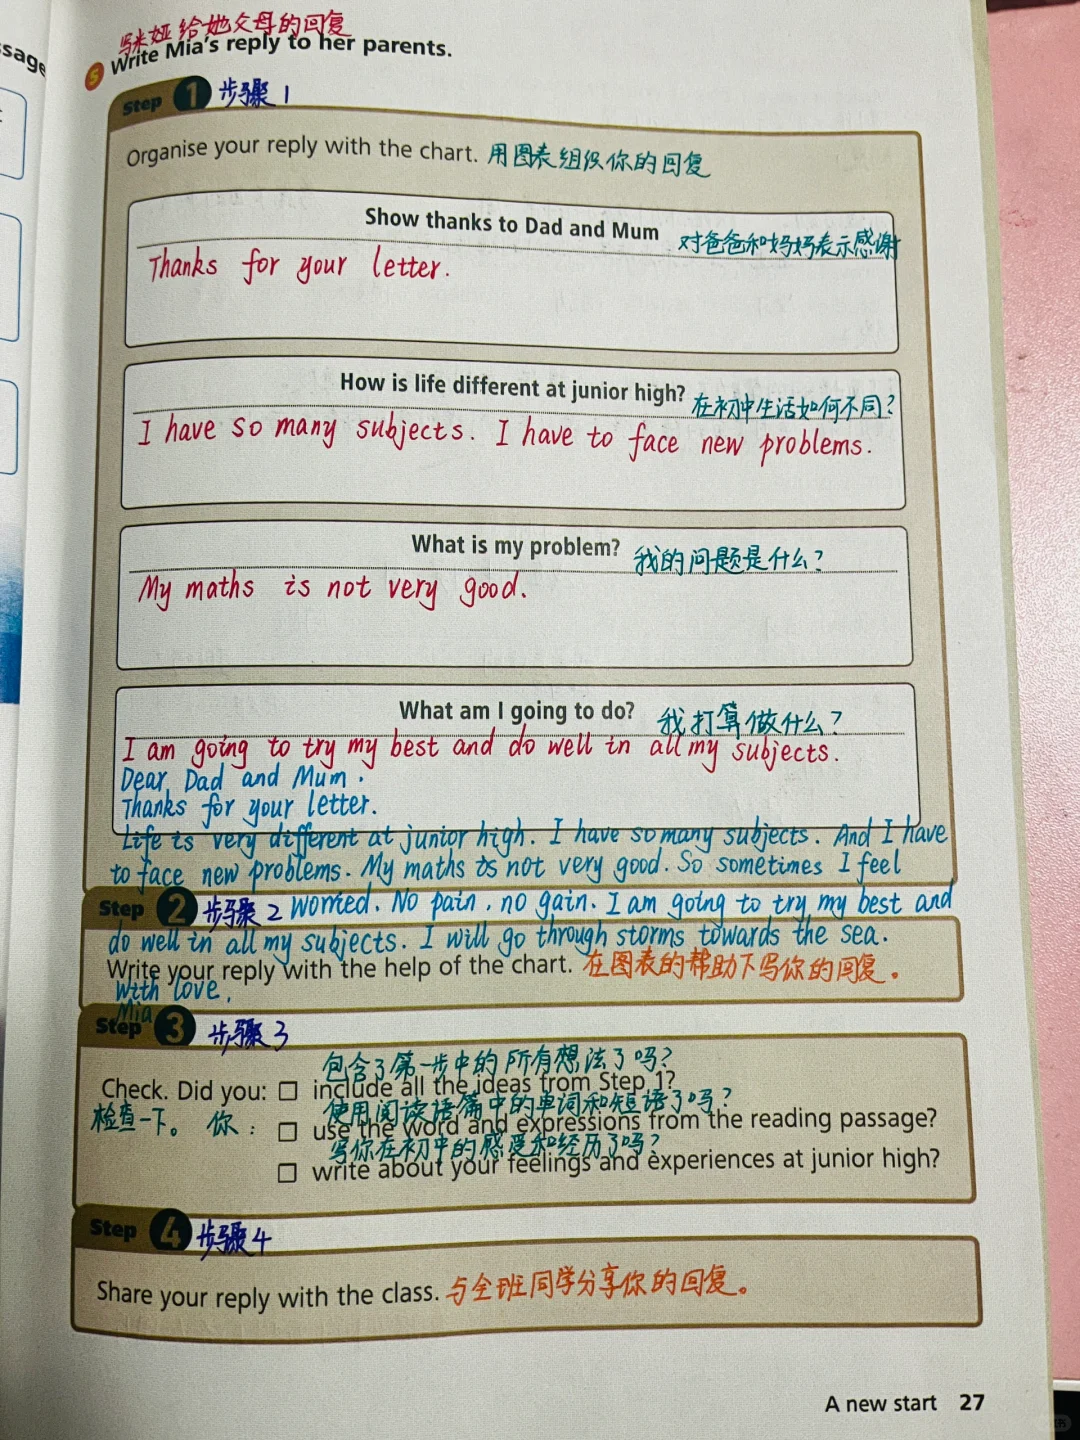 ssage
写米娅给她父母的回复
5 Write Mia's reply to her parents.
Step 1 步骤1
Organise your reply with the chart. 用图表组织你的回复
Show thanks to Dad and Mum 对爸爸和妈妈表示感谢
Thanks for your letter.
How is life different at junior high? 在初中生活如何不同?
I have so many subjects. I have to face new problems.
What is my problem? 我的问题是什么?
My maths is not very good.
What am I going to do? 我打算做什么?
I am going to try my best and do well in all my subjects.
Dear Dad and Mum.
Thanks for your letter.
Life is very different at junior high. I have so many subjects. And I have
to face new problems. My maths is not very good. So sometimes I feel
Step 2 步骤2 worried. No pain, no gain. I am going to try my best and
do well in all my subjects. I will go through storms towards the sea.
Write your reply with the help of the chart. 在图表的帮助下写你的回复。
With love,
Mia
Step 3 步骤3
包含了第一步中的所有想法了吗?
Check. Did you: □ include all the ideas from Step 1?
使用阅读语篇中的单词和短语了吗?
检查一下。 你: □ use the word and expressions from the reading passage?
写你在初中的感受和经历了吗?
□ write about your feelings and experiences at junior high?
Step 4 步骤4
Share your reply with the class. 与全班同学分享你的回复。
A new start 27